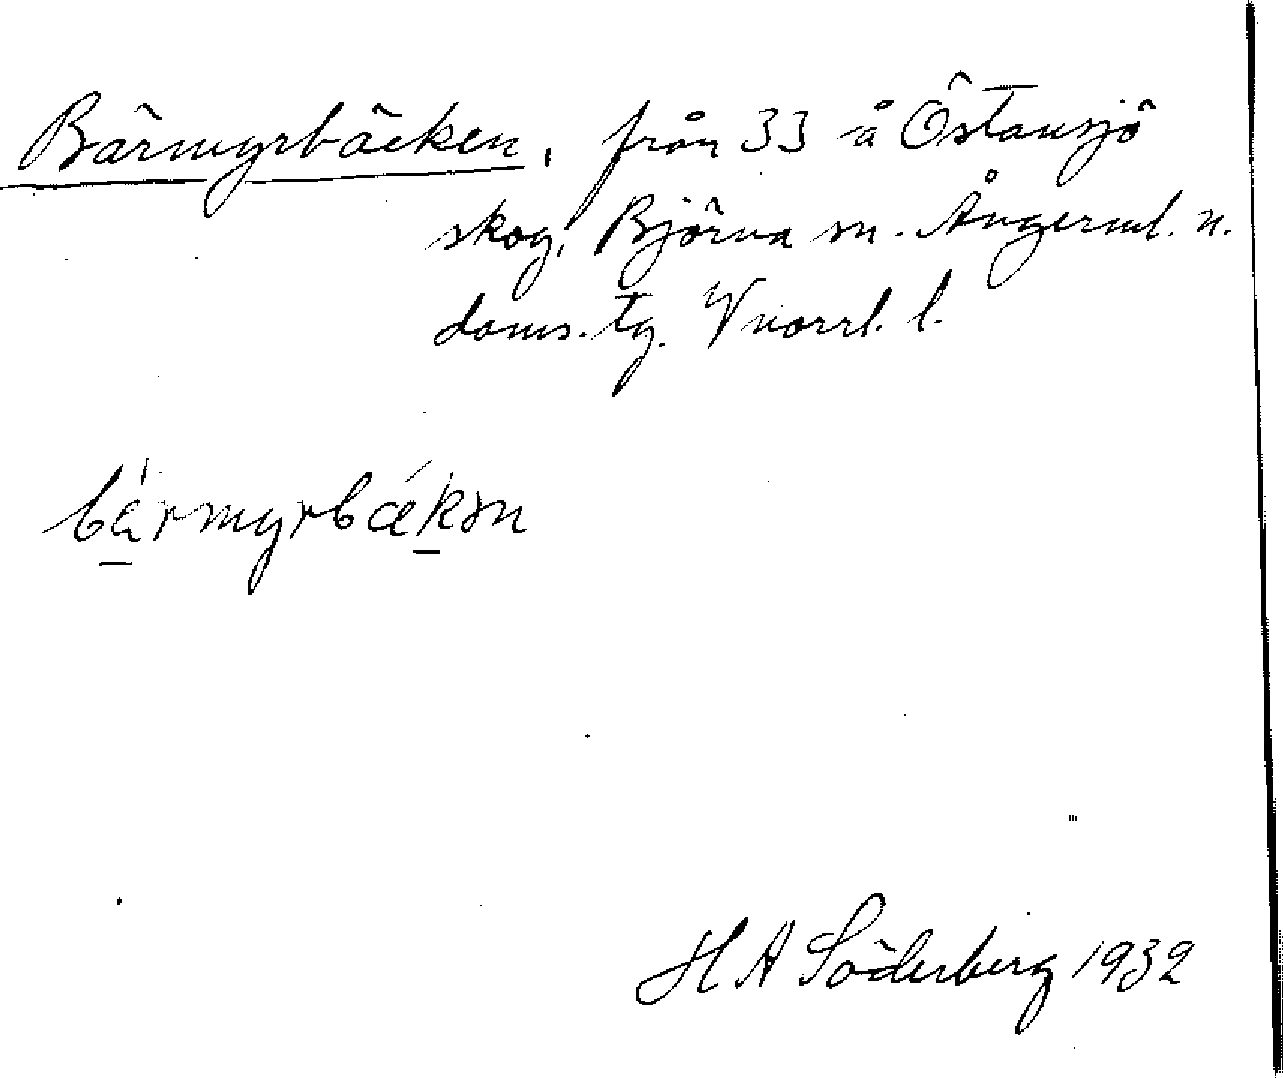 Bärmyrbäcken, från 33 å Östansjö
skog, Björna sn. Ångerml. n.
doms. tg. Vnorrl. l.
bärmyrbækən
H A Söderberg 1932